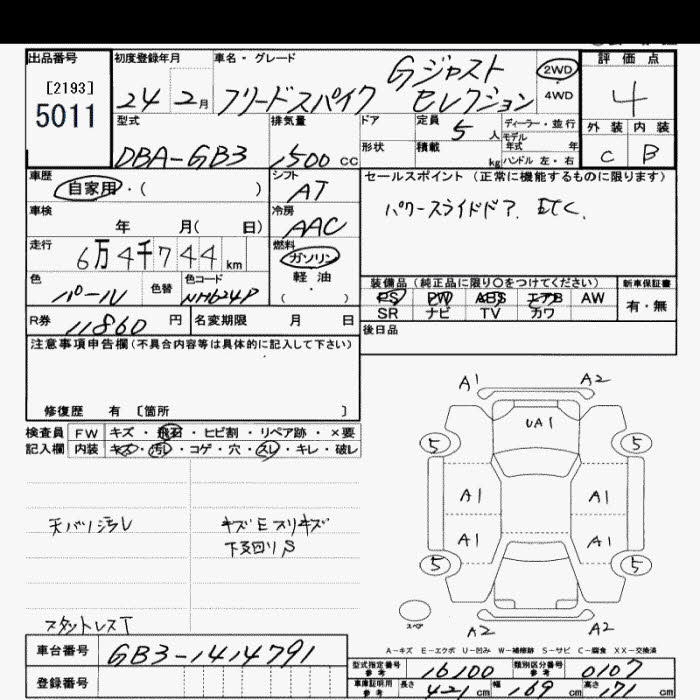 出品番号 初度登録年月 車名・グレード 評価点
[2193]
5011
24年2月 フリードスパイク Gジャスト セレクション 2WD 4WD 4
型式 排気量 ドア 定員 5人 ディーラー・並行 外装 内装
DBA-GB3 1500cc 形状 積載 kg モデル年式 年 ハンドル 左・右 C B
車歴 自家用・( ) シフト AT セールスポイント(正常に機能するものに限ります)
車検 年 月( 日) 冷房 AAC パワースライドドア、ETC、
走行 6万4千744km 燃料 ガソリン 軽油 ( )
色 パール 色替 色コード NH624P
装備品(純正品に限り○をつけてください) 新車保証書
PS PW ABS エアB AW 有・無
SR ナビ TV カワ
R券 11860円 名変期限 月 日 後日品
注意事項申告欄(不具合内容等は具体的に記入して下さい)
修復歴 有 〔箇所 〕
検査員 FW キズ・飛石・ヒビ割・リペア跡・×要
記入欄 内装 キズ・汚レ・コゲ・穴・スレ・キレ・破レ
天バリ汚レ キズEスリキズ
下廻りS
スタットレスT
A1 A2
UA1
5 5
A1 A1
A1 A1
5 5
スペア
A2 A2
A-キズ E-エクボ U-凹み W-補修跡 S-サビ C-腐食 XX-交換済
車台番号 GB3-1414791
登録番号
型式指定番号 参考 16100 類別区分番号 参考 0107
車庫証明用 参考 長さ 421cm 幅 169cm 高さ 171cm